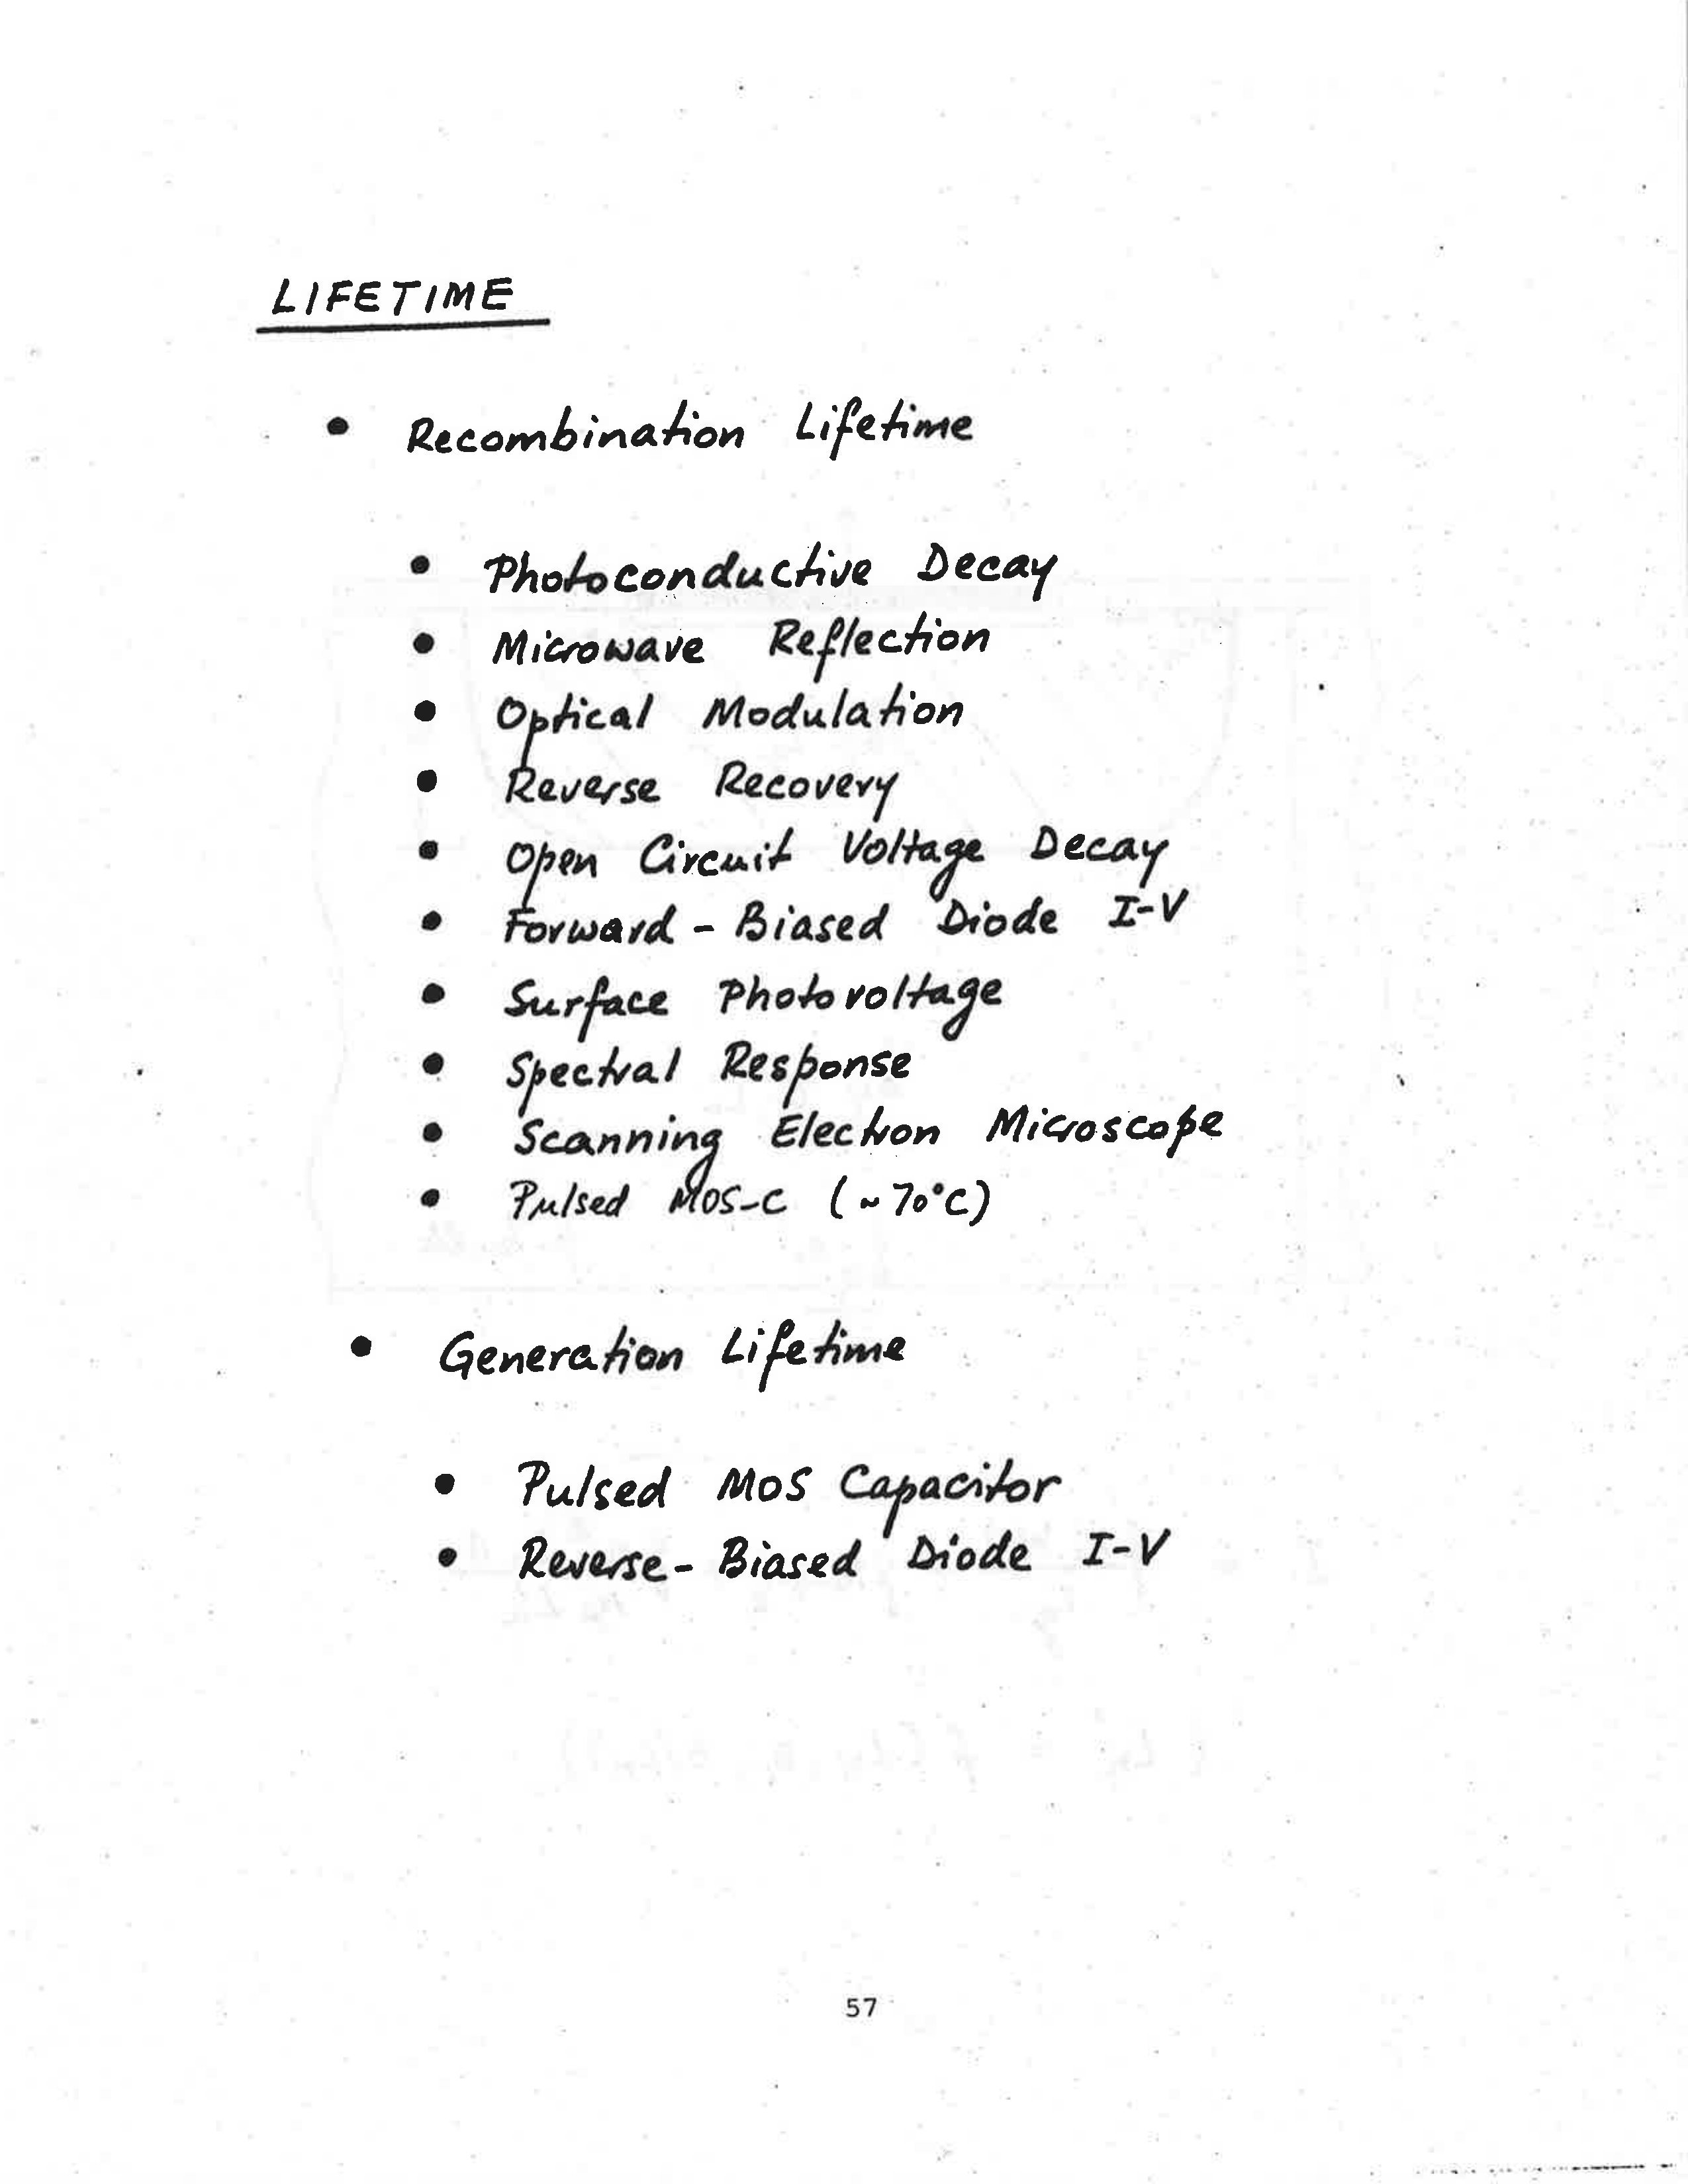 LIFETIME
• Recombination Lifetime
• Photoconductive Decay
• Microwave Reflection
• Optical Modulation
• Reverse Recovery
• Open Circuit Voltage Decay
• Forward - Biased Diode I-V
• Surface Photovoltage
• Spectral Response
• Scanning Electron Microscope
• Pulsed MOS-C (~70°C)
• Generation Lifetime
• Pulsed MOS Capacitor
• Reverse- Biased Diode I-V
57